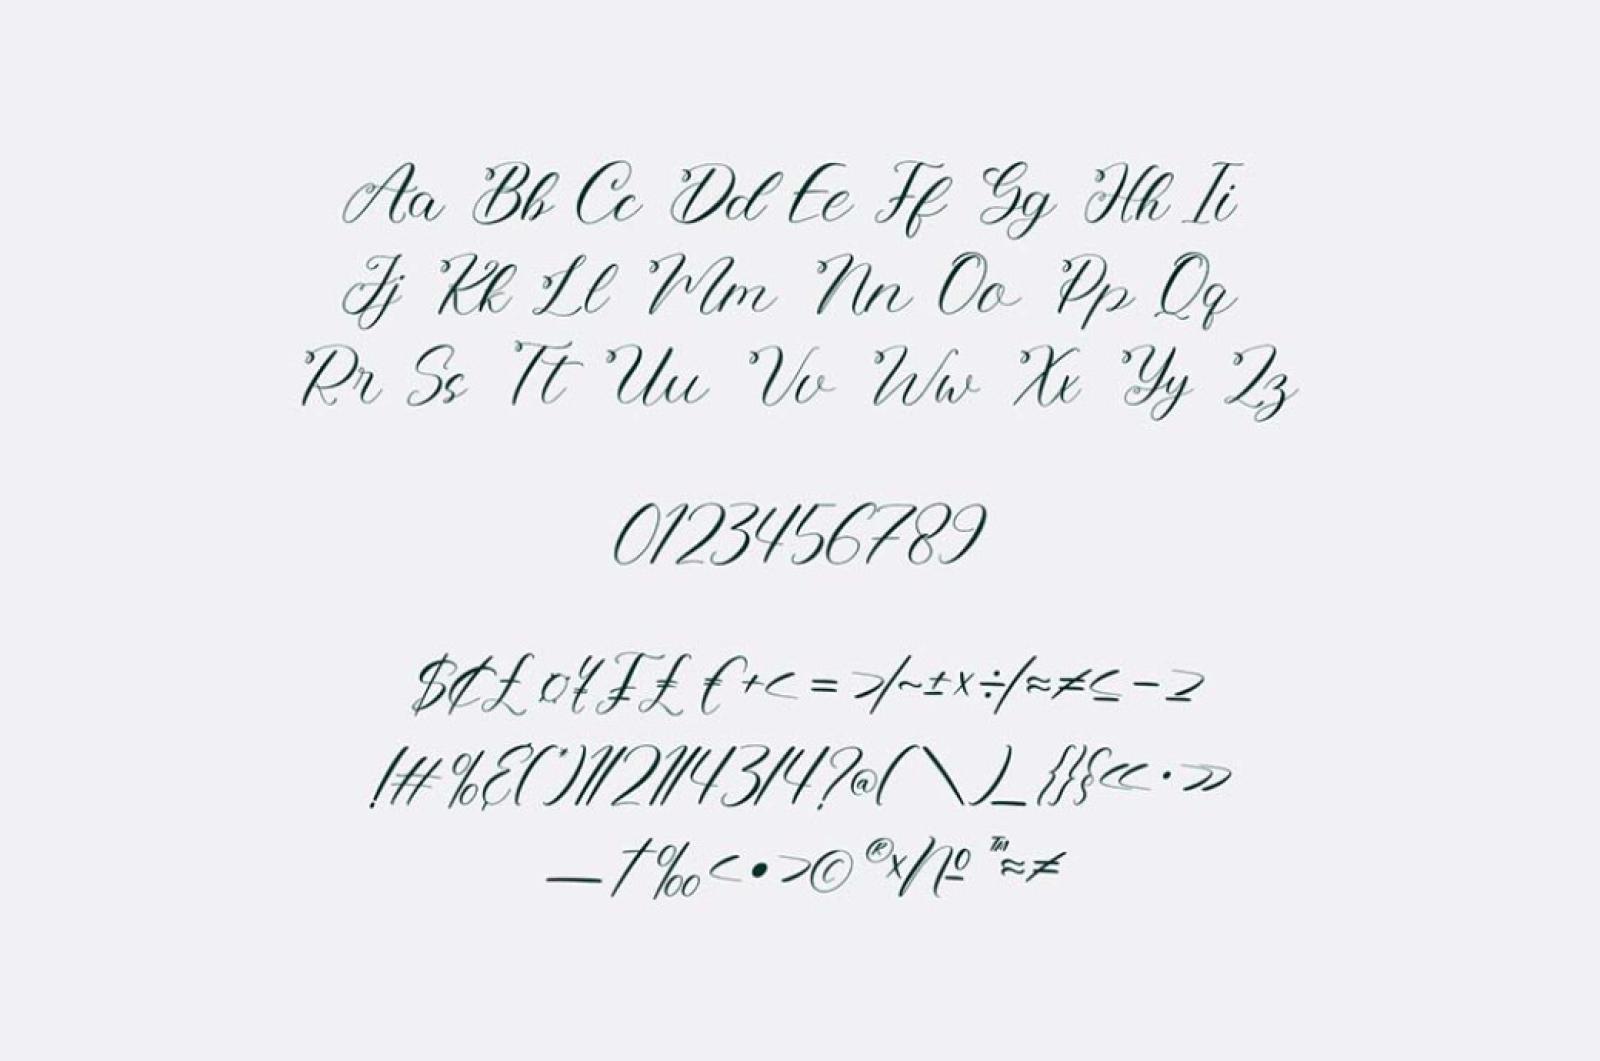 Aa Bb Cc Dd Ee Ff Gg Hh Ii
Jj Kk Ll Mm Nn Oo Pp Qq
Rr Ss Tt Uu Vv Ww Xx Yy Zz
0123456789
$¢£¤¥₣₤€+<=>/~±×÷/≈≠≤−≥
!#%&(*)1/21/43/4?@(\)_{}{«·»
—†‰‹•›©®×/№™≈≠